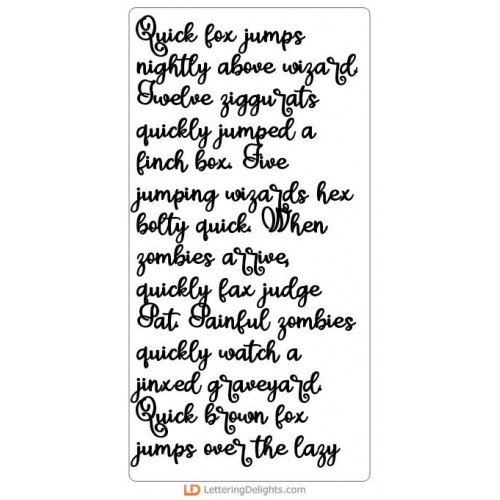 Quick fox jumps
nightly above wizard.
Twelve ziggurats
quickly jumped a
finch box. Five
jumping wizards hex
bolty quick. When
zombies arrive,
quickly fax judge
Pat. Painful zombies
quickly watch a
jinxed graveyard.
Quick brown fox
jumps over the lazy
LD LetteringDelights.com